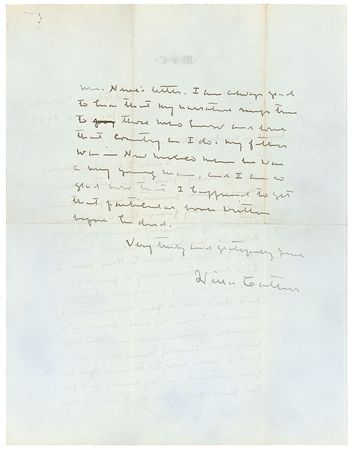 Mrs. letter. I am always glad
to hear that my narrative rings true
to those who know and love
that country as I do. My father
was in New Mexico when he was
a very young man, and I am so
glad now that I happened to get
that particular book written
before he died.
Very truly and gratefully yours
Willa Cather